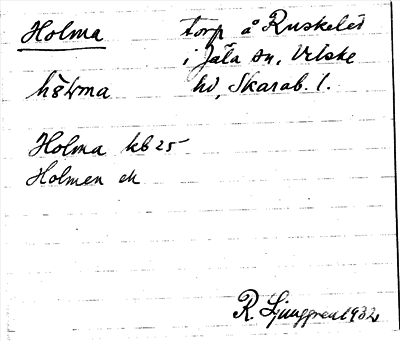 Holma torp å Ruskeled
i Jäla sn, Vilske
hd, Skarab. l.
Holma kb 25
Holmen ek
R. Ljunggren 1932